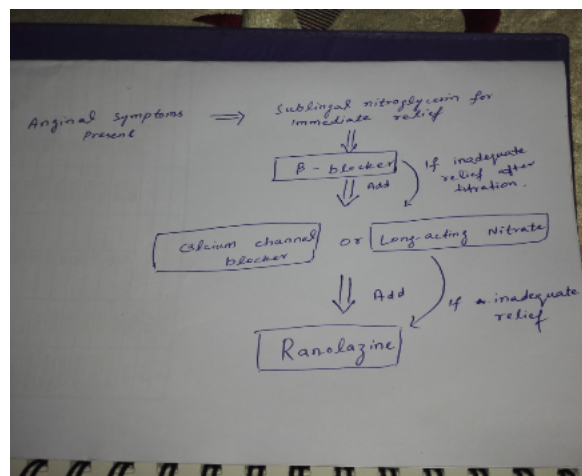 Anginal symptoms Present ⇒ Sublingal nitroglycerin for Immediate relief
β-blocker
Add
If inadequate relief after titration.
Calcium channel blocker or Long-acting Nitrate
Add
If inadequate relief
Ranolazine